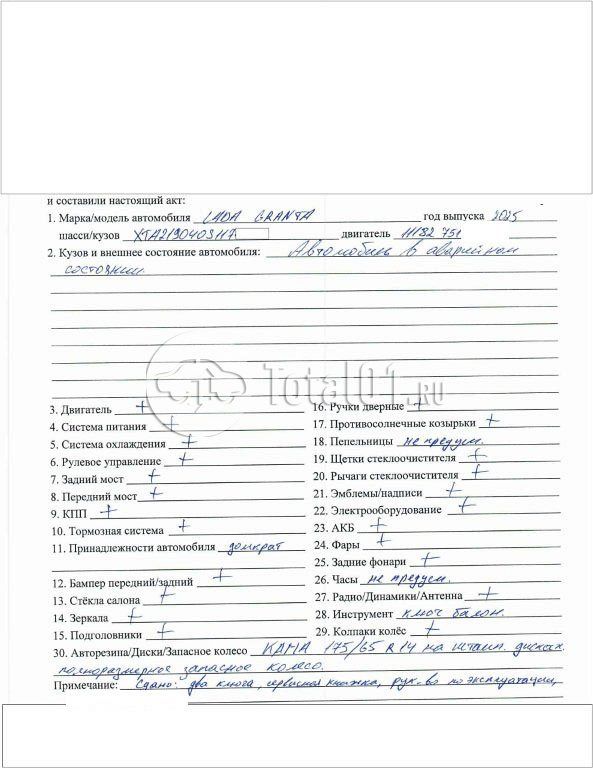 и составили настоящий акт:
1. Марка/модель автомобиля LADA GRANTA год выпуска 2025
шасси/кузов двигатель 11182 751
2. Кузов и внешнее состояние автомобиля: Автомобиль в аварийном
состоянии.
Total01.RU
3. Двигатель +
4. Система питания +
5. Система охлаждения +
6. Рулевое управление +
7. Задний мост +
8. Передний мост +
9. КПП +
10. Тормозная система +
11. Принадлежности автомобиля домкрат
12. Бампер передний/задний +
13. Стёкла салона +
14. Зеркала +
15. Подголовники +
16. Ручки дверные +
17. Противосолнечные козырьки +
18. Пепельницы не предусм.
19. Щетки стеклоочистителя +
20. Рычаги стеклоочистителя +
21. Эмблемы/надписи +
22. Электрооборудование +
23. АКБ +
24. Фары +
25. Задние фонари +
26. Часы не предусм.
27. Радио/Динамики/Антенна +
28. Инструмент ключ балон.
29. Колпаки колёс +
30. Авторезина/Диски/Запасное колесо КАМА 175/65 R 14 на штамп. дисках
полноразмерное запасное колесо.
Примечание: Сдано: два ключа, сервисная книжка, рук-во по эксплуатации,